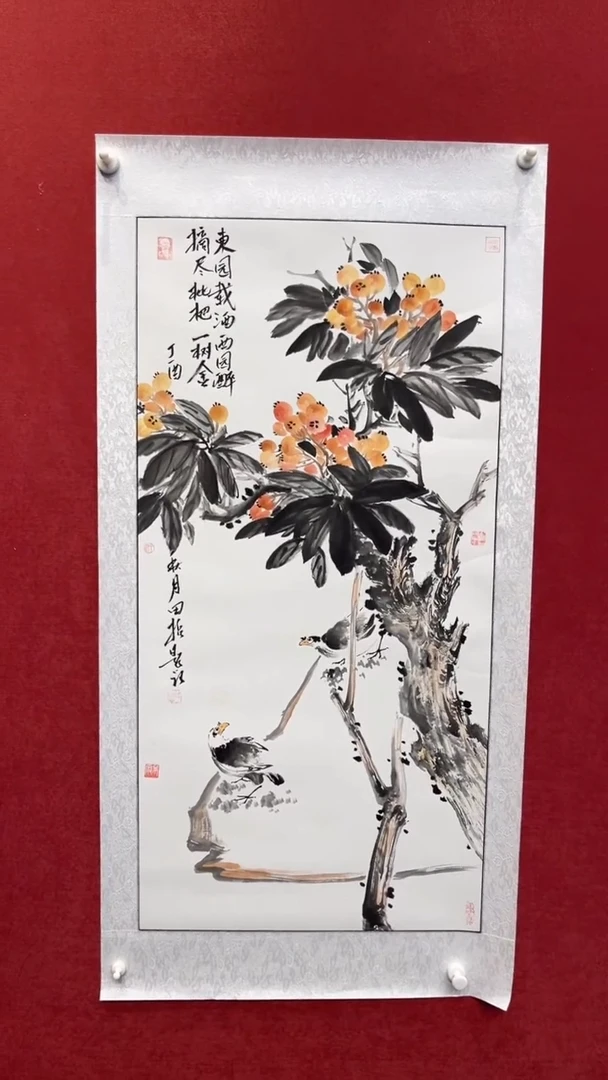 東园载酒西园醉
摘尽枇杷一树金
丁酉
秋月田哲